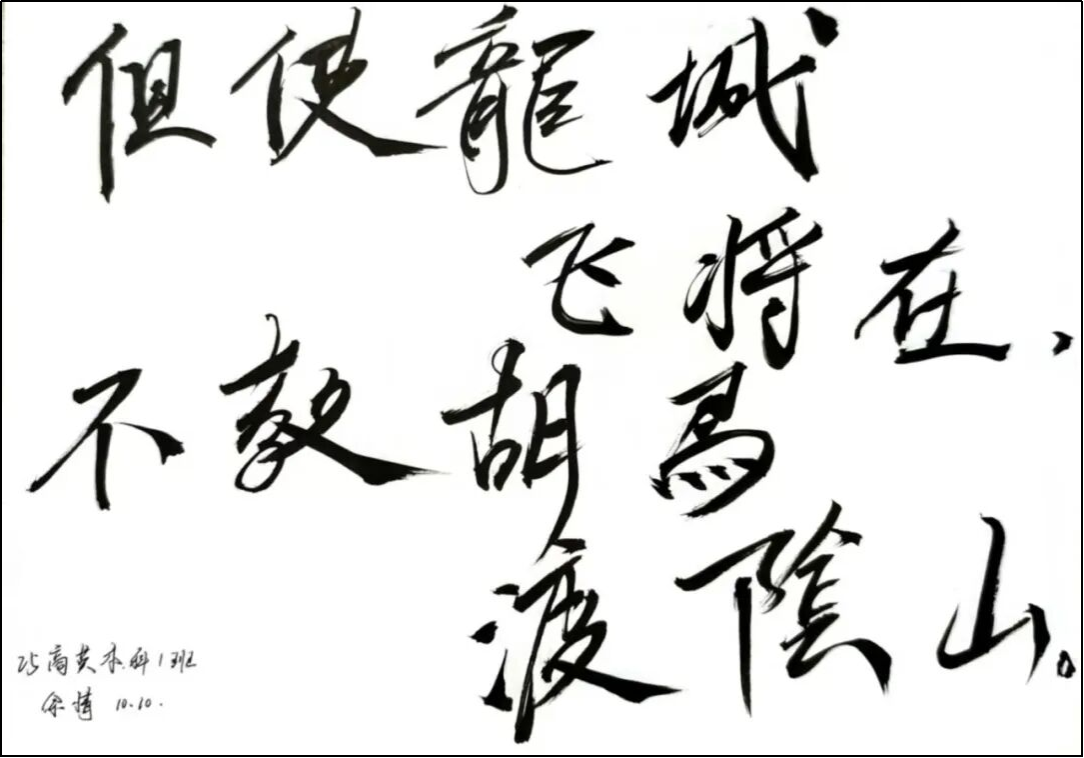 但使龍城
飞将在，
不教胡馬
渡陰山。
25商英本科1班
余情 10.10.